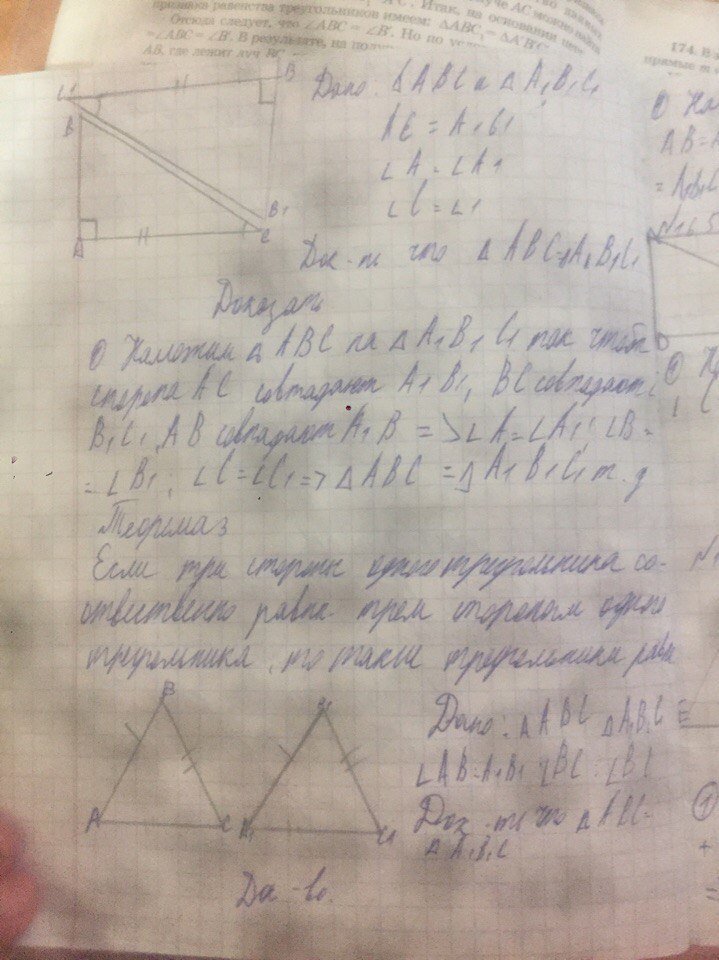 признака равенства треугольников имеем: ΔABC₁ = ΔA'B'C'
Отсюда следует, что ∠ABC = ∠B'. Но по
=∠ABC = ∠B'. В результате, на
AB, где лежит луч BC
174. В
прямые
C1 B
B
B1
A C
Дано: ΔABC и ΔA1B1C1
AC = A1C1
∠A = ∠A1
∠C = ∠1
Док-ть что ΔABC=ΔA1B1C1
Доказать
1) Наложим ΔABC на ΔA1B1C1 так чтоб
сторона AC совпадают A1B1, BC совпадают
B1C1, AB совпадают A1B => ∠A=∠A1; ∠B=
=∠B1, ∠C=∠C1 => ΔABC = ΔA1B1C1 т.д
Теорема 3
Если три стороны одного треугольника со-
ответственно равны трем сторонам одного
треугольника, то такие треугольники равны
B
A C A1 C1
Дано: ΔABC ΔA1B1C
∠AB=A1B1 ∠BC=∠BC
Док-ть что ΔABC=
ΔA1B1C
До-во.